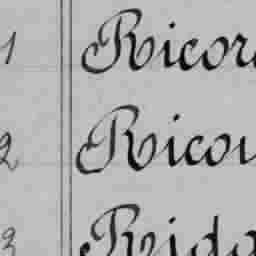 1 Ricor
2 Ricou
3 Rida